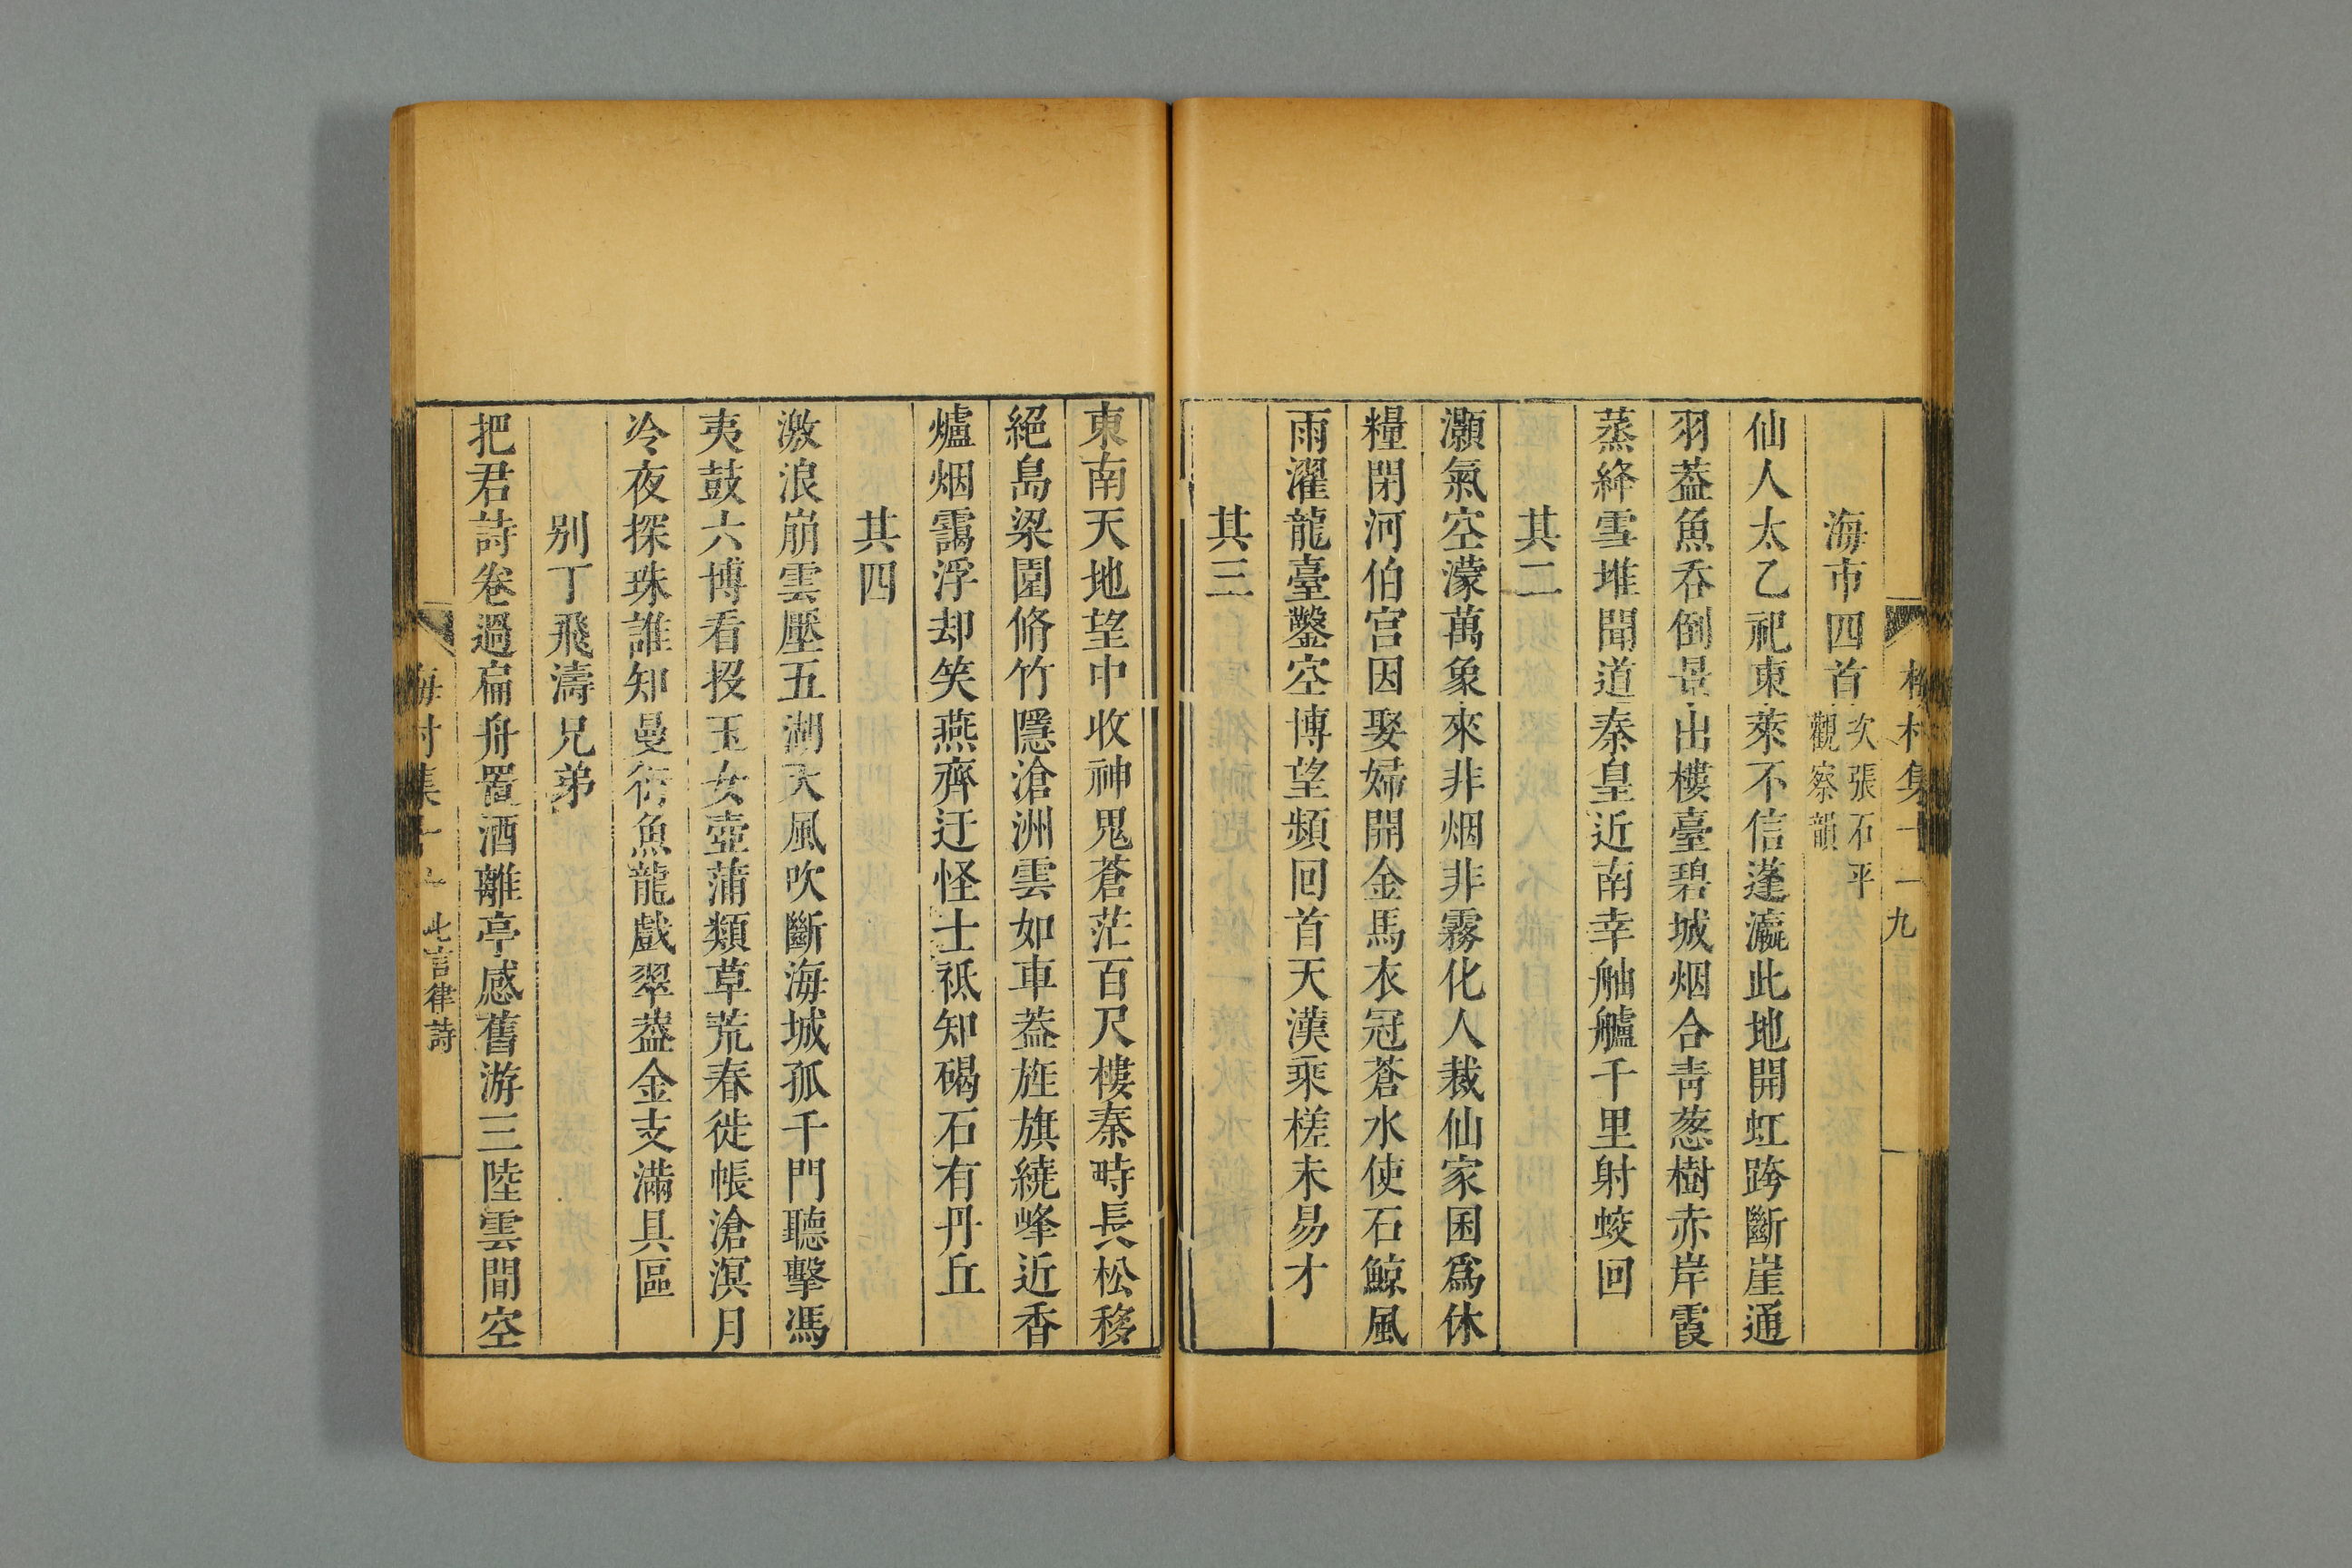 海市四首 次張石平觀察韻
仙人太乙祀東萊不信蓬瀛此地開虹跨斷崖通
羽葢魚呑倒景出樓臺碧城烟合靑葱樹赤岸霞
蒸絳雪堆聞道秦皇近南幸舳艫千里射蛟回
其二
灝氣空濛萬象來非烟非霧化人裁仙家困爲休
糧閉河伯宮因娶婦開金馬衣冠蒼水使石鯨風
雨濯龍臺鑿空博望頻回首天漢乘槎未易才
其三
東南天地望中收神鬼蒼茫百尺樓秦時長松移
絕島梁園脩竹隱滄洲雲如車葢旌旗繞峰近香
爐烟靄浮却笑燕齊迂怪士祗知碣石有丹丘
其四
激浪崩雲壓五湖天風吹斷海城孤千門聽擊馮
夷鼓六博看投玉女壺蒲類草荒春徙帳滄溟月
冷夜探珠誰知曼衍魚龍戲翠葢金支滿具區
别丁飛濤兄弟
把君詩卷過扁舟置酒離亭感舊游三陸雲間空
梅村集十一 七言律詩
九